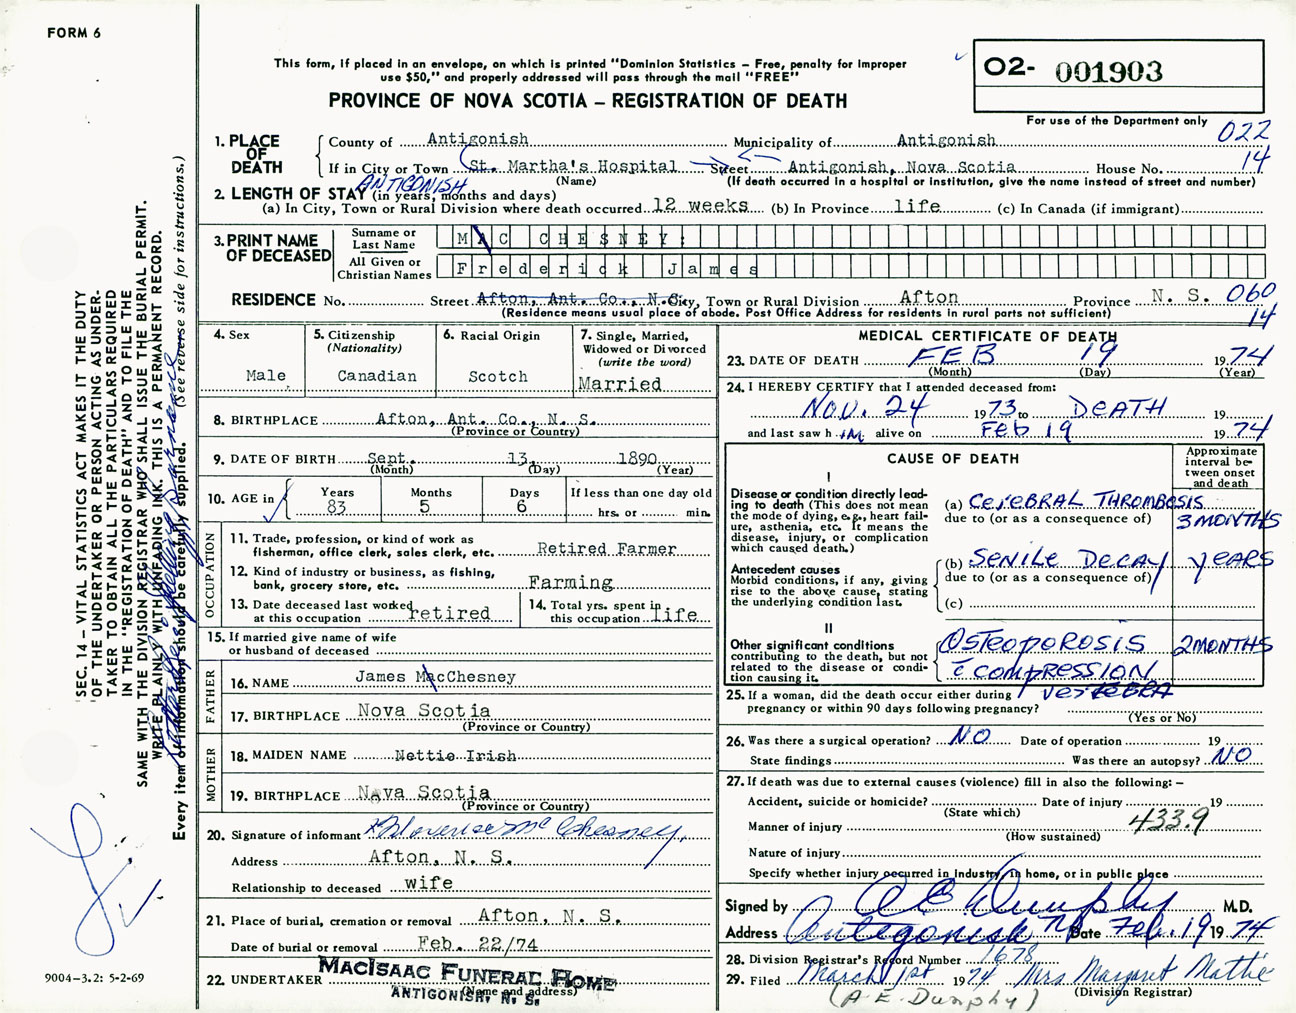 FORM 6
This form, if placed in an envelope, on which is printed "Dominion Statistics – Free, penalty for improper
use $50," and properly addressed will pass through the mail "FREE"
PROVINCE OF NOVA SCOTIA – REGISTRATION OF DEATH
02- 001903
For use of the Department only
022
14
1. PLACE OF DEATH
County of Antigonish Municipality of Antigonish
If in City or Town St. Martha's Hospital Street Antigonish, Nova Scotia House No.
(Name) (If death occurred in a hospital or institution, give the name instead of street and number)
ANTIGONISH
2. LENGTH OF STAY (in years, months and days)
(a) In City, Town or Rural Division where death occurred 12 weeks (b) In Province life (c) In Canada (if immigrant)
3. PRINT NAME OF DECEASED
Surname or Last Name MAC CHESNEY:
All Given or Christian Names Frederick James
RESIDENCE No. Street Afton, Ant. Co., N.S. City, Town or Rural Division Afton Province N. S. 060
(Residence means usual place of abode. Post Office Address for residents in rural parts not sufficient) 14
4. Sex
Male
5. Citizenship
(Nationality)
Canadian
6. Racial Origin
Scotch
7. Single, Married,
Widowed or Divorced
(write the word)
Married
8. BIRTHPLACE Afton, Ant. Co., N. S.
(Province or Country)
9. DATE OF BIRTH Sept. 13, 1890
(Month) (Day) (Year)
10. AGE in
Years Months Days If less than one day old
83 5 6 hrs. or min.
OCCUPATION
11. Trade, profession, or kind of work as
fisherman, office clerk, sales clerk, etc. Retired Farmer
12. Kind of industry or business, as fishing,
bank, grocery store, etc. Farming
13. Date deceased last worked
at this occupation retired
14. Total yrs. spent in
this occupation life
15. If married give name of wife
or husband of deceased
FATHER
16. NAME James MacChesney
17. BIRTHPLACE Nova Scotia
(Province or Country)
MOTHER
18. MAIDEN NAME Nettie Irish
19. BIRTHPLACE Nova Scotia
(Province or Country)
20. Signature of informant x McChesney
Address Afton, N. S.
Relationship to deceased wife
21. Place of burial, cremation or removal Afton, N. S.
Date of burial or removal Feb. 22/74
22. UNDERTAKER MACISAAC FUNERAL HOME
(Name and address)
ANTIGONISH, N. S.
MEDICAL CERTIFICATE OF DEATH
23. DATE OF DEATH FEB 19 1974
(Month) (Day) (Year)
24. I HEREBY CERTIFY that I attended deceased from:
NOV. 24 1973 to DEATH 19
and last saw him alive on Feb 19 1974
CAUSE OF DEATH
Approximate
interval be-
tween onset
and death
I
Disease or condition directly lead-
ing to death (This does not mean
the mode of dying, e.g., heart fail-
ure, asthenia, etc. It means the
disease, injury, or complication
which caused death.)
(a) CEREBRAL THROMBOSIS
due to (or as a consequence of) 3 MONTHS
Antecedent causes
Morbid conditions, if any, giving
rise to the above cause, stating
the underlying condition last.
(b) SENILE DECAY YEARS
due to (or as a consequence of)
(c)
II
Other significant conditions
contributing to the death, but not
related to the disease or condi-
tion causing it.
OSTEOPOROSIS 2 MONTHS
c̄ COMPRESSION
VERTEBRA
25. If a woman, did the death occur either during
pregnancy or within 90 days following pregnancy?
(Yes or No)
26. Was there a surgical operation? NO Date of operation 19
State findings Was there an autopsy? NO
27. If death was due to external causes (violence) fill in also the following: –
Accident, suicide or homicide? Date of injury 19
(State which)
Manner of injury 433.9
(How sustained)
Nature of injury
Specify whether injury occurred in Industry, in home, or in public place
Signed by A E Dunphy M.D.
Address Antigonish NS Date Feb. 19 1974
28. Division Registrar's Record Number 1678
29. Filed March 1st 1974 Mrs Margaret Mattie
(Division Registrar)
(A E. Dunphy)
'SEC. 14 – VITAL STATISTICS ACT MAKES IT THE DUTY
'OF THE UNDERTAKER OR PERSON ACTING AS UNDER-
TAKER TO OBTAIN ALL THE PARTICULARS REQUIRED
IN THE "REGISTRATION OF DEATH" AND TO FILE THE
SAME WITH THE DIVISION REGISTRAR WHO SHALL ISSUE THE BURIAL PERMIT.
WRITE PLAINLY WITH UNFADING INK. THIS IS A PERMANENT RECORD.
Every item of information should be carefully supplied. (See reverse side for instructions.)
9004-3.2: 5-2-69